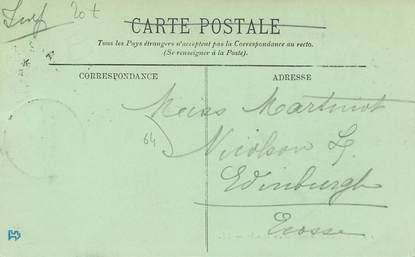 20t
CARTE POSTALE
Tous les Pays étrangers n'acceptent pas la Correspondance au recto.
(Se renseigner à la Poste).
CORRESPONDANCE
ADRESSE
Miss Martinot
64
Nicolson
Edinburgh
Ecosse